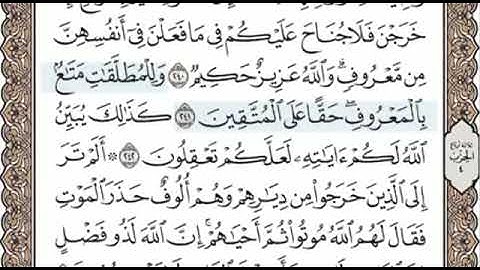 خَرَجْنَ فَلَا جُنَاحَ عَلَيْكُمْ فِى مَا فَعَلْنَ فِىٓ أَنفُسِهِنَّ
مِن مَّعْرُوفٍ ۗ وَٱللَّهُ عَزِيزٌ حَكِيمٌ ٢٤٠ وَلِلْمُطَلَّقَٰتِ مَتَٰعٌۢ
بِٱلْمَعْرُوفِ ۖ حَقًّا عَلَى ٱلْمُتَّقِينَ ٢٤١ كَذَٰلِكَ يُبَيِّنُ
ٱللَّهُ لَكُمْ ءَايَٰتِهِۦ لَعَلَّكُمْ تَعْقِلُونَ ٢٤٢ ۞ أَلَمْ تَرَ
إِلَى ٱلَّذِينَ خَرَجُوا۟ مِن دِيَٰرِهِمْ وَهُمْ أُلُوفٌ حَذَرَ ٱلْمَوْتِ
فَقَالَ لَهُمُ ٱللَّهُ مُوتُوا۟ ثُمَّ أَحْيَٰهُمْ ۚ إِنَّ ٱللَّهَ لَذُو فَضْلٍ
الحزب
٤